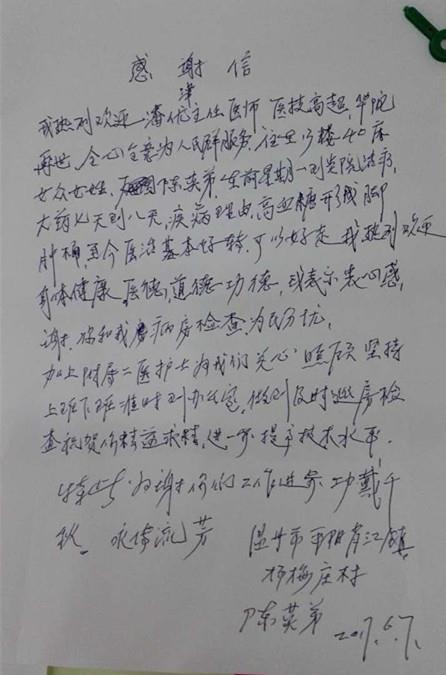 感谢信
我热烈欢迎潘优津主任医师 医技高超，华陀
再世，全心全意为人民群服务，住
女 陈英弟，生前星期一到贵院治病，
大约七天到八天，疾病理由，高血糖形成脚
肿痛，至今医治基本好转，可以好走 我热烈欢迎
身体健康 医德，道德 功德，我表示衷心感
谢，你和我 病房检查，为民分忧，
加上附属二医护士为我们关心 照顾 坚持
上班下班准时到办公室，做到及时巡房检
查 你精益求精，进一步提高技术水平，
特此 为谢 你们工作进步 功戴千
秋 永传流芳 温州市平阳肖江镇
杨梅庄村
陈英弟 2017.6.7.